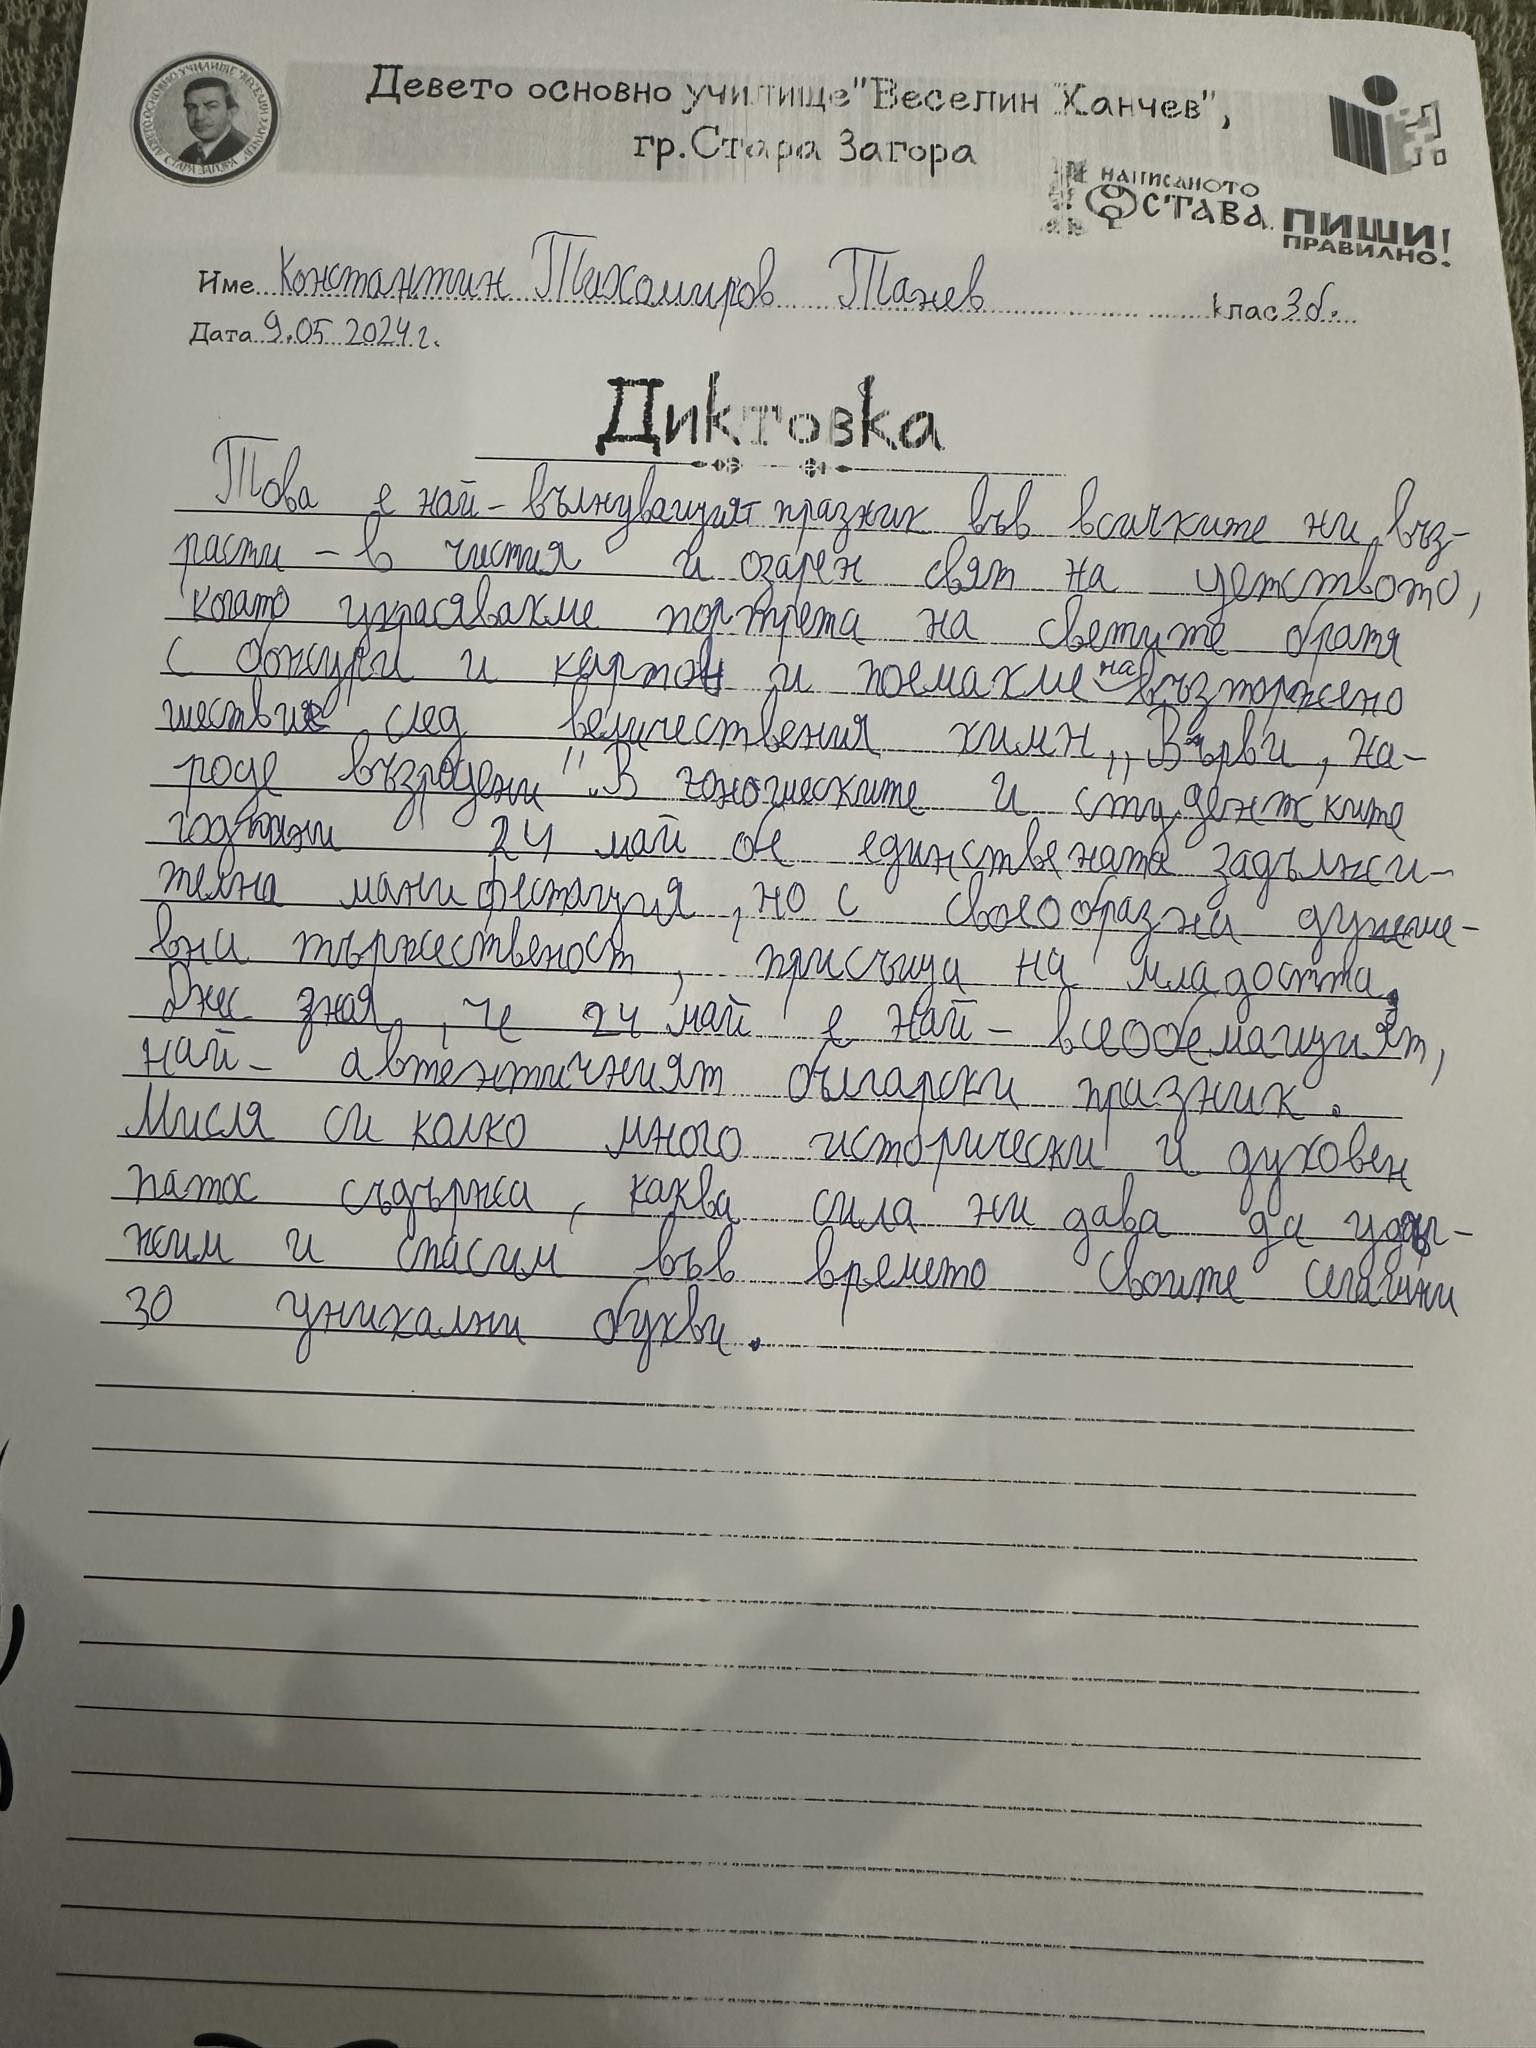 Девето основно училище "Веселин Ханчев",
гр.Стара Загора
ДЕВЕТО ОСНОВНО УЧИЛИЩЕ "ВЕСЕЛИН ХАНЧЕВ" СТАРА ЗАГОРА
НАПИСАНОТО
ОСТАВА.
ПИШИ
ПРАВИЛНО!
Име Константин Тихомиров Танев клас 3б.
Дата 9.05 2024 г.
Диктовка
Това е най-вълнуващият празник във всичките ни въз-
расти - в чистия и озарен свят на детството,
когато украсявахме портрета на светите братя
с божури и картон и поемахме на възторжено
шествие след величествения химн „Върви, на-
роде възродени". В юношеските и студентските
години 24 май бе единствената задължи-
телна манифестация, но с своеобразни душе-
вни тържественост, присъща на младостта.
Днес зная, че 24 май е най-всеобемащият,
най-автентичният български празник.
Мисля си колко много исторически и духовен
патос съдържа, каква сила ни дава да удъл-
жим и спасим във времето своите сегашни
30 уникални букви.